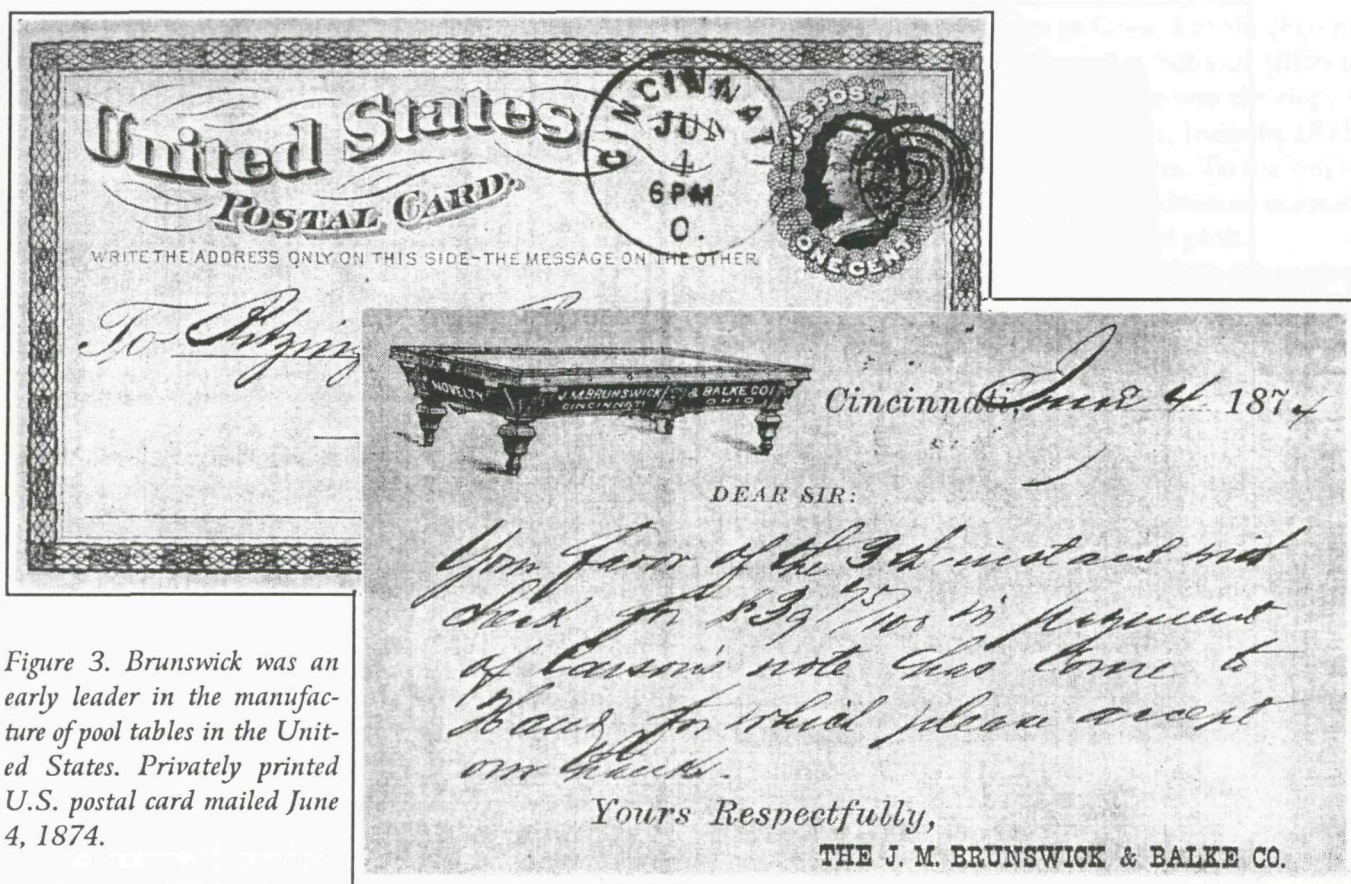 United States
POSTAL CARD.
WRITE THE ADDRESS ONLY ON THIS SIDE-THE MESSAGE ON THE OTHER
CINCINNATI
JUN
4
6PM
O.
U.S. POSTAGE
ONE CENT
To
NOVELTY
J.M. BRUNSWICK & BALKE CO.
CINCINNATI OHIO
Cincinnati, June 4 1874
DEAR SIR:
Your favor of the 3th instant with
check for $39 75/100 in payment
of Carson's note has come to
Hand for which please accept
our thanks.
Yours Respectfully,
THE J. M. BRUNSWICK & BALKE CO.
Figure 3. Brunswick was an
early leader in the manufac-
ture of pool tables in the Unit-
ed States. Privately printed
U.S. postal card mailed June
4, 1874.